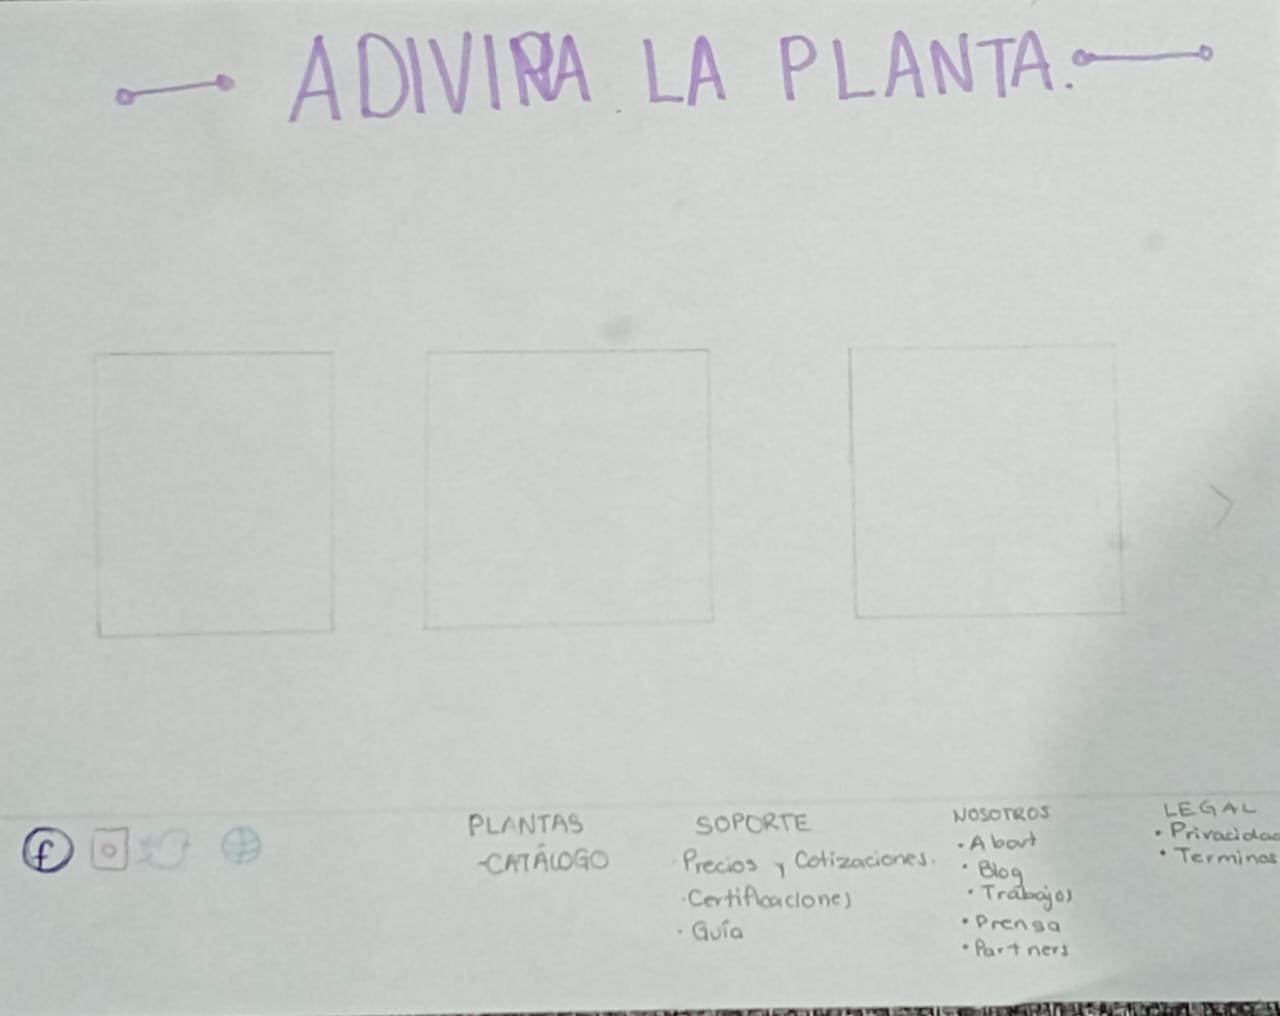 ADIVINA LA PLANTA.
f
PLANTAS
-CATÁLOGO
SOPORTE
· Precios y Cotizaciones.
· Certificaciones
· Guía
NOSOTROS
· About
· Blog
· Trabajos
· Prensa
· Partners
LEGAL
· Privacidad
· Terminos